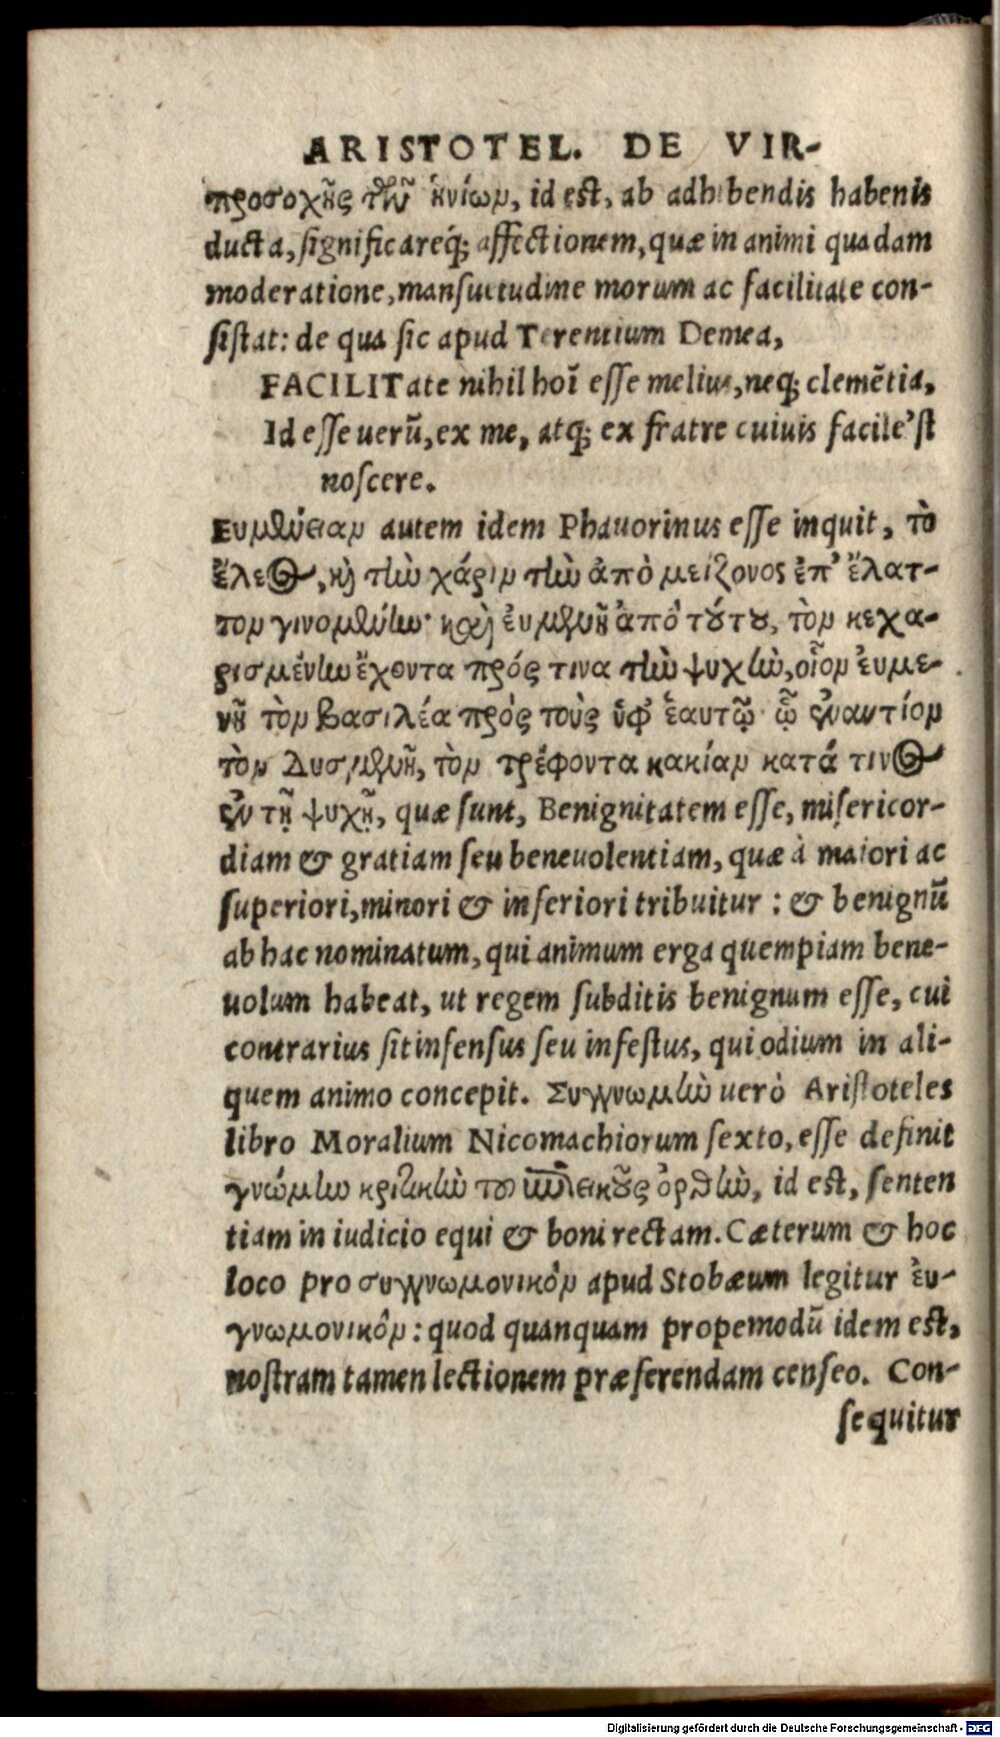 ARISTOTEL. DE VIR-
προσοχῆς τῶν ἡνίων, id est, ab adhibendis habenis
ducta, significareq́; affectionem, quæ in animi quadam
moderatione, mansuetudine morum ac facilitate con-
sistat: de qua sic apud Terentium Demea,
FACILITate nihil hoī esse melius, neq; clemētia,
Id esse uerū, ex me, atq; ex fratre cuiuis facile'st
noscere.
Ευμένειαν autem idem Phauorinus esse inquit, τὸ
ἔλεος, κὶ τὴν χάριν τὴν ἀπὸ μείζονος ἐπ' ἔλατ-
τον γινομένην· καὶ ἐυμενῆ ἀπὸ τούτου, τὸν κεχα-
ρισμένην ἔχοντα πρός τινα τὴν ψυχὴν, οἷον ἐυμε-
νῆ τὸν βασιλέα πρὸς τοὺς ὑφ' ἑαυτῷ· ᾧ ἐναντίον
τὸν Δυσμενῆ, τὸν τρέφοντα κακίαν κατά τινος
ἐν τῇ ψυχῇ, quæ sunt, Benignitatem esse, misericor-
diam & gratiam seu beneuolentiam, quæ à maiori ac
superiori, minori & inferiori tribuitur : & benignū
ab hac nominatum, qui animum erga quempiam bene-
uolum habeat, ut regem subditis benignum esse, cui
contrarius sit infensus seu infestus, qui odium in ali-
quem animo concepit. Συγγνωμὴν uerò Aristoteles
libro Moralium Nicomachiorum sexto, esse definit
γνώμην κριτικὴν τοῦ ἐπιεικοῦς ὀρθὴν, id est, senten
tiam in iudicio equi & boni rectam. Cæterum & hoc
loco pro συγγνωμονικὸν apud Stobæum legitur ἐυ-
γνωμονικὸν : quod quanquam propemodū idem est,
nostram tamen lectionem præferendam censeo. Con-
sequitur
Digitalisierung gefördert durch die Deutsche Forschungsgemeinschaft - DFG